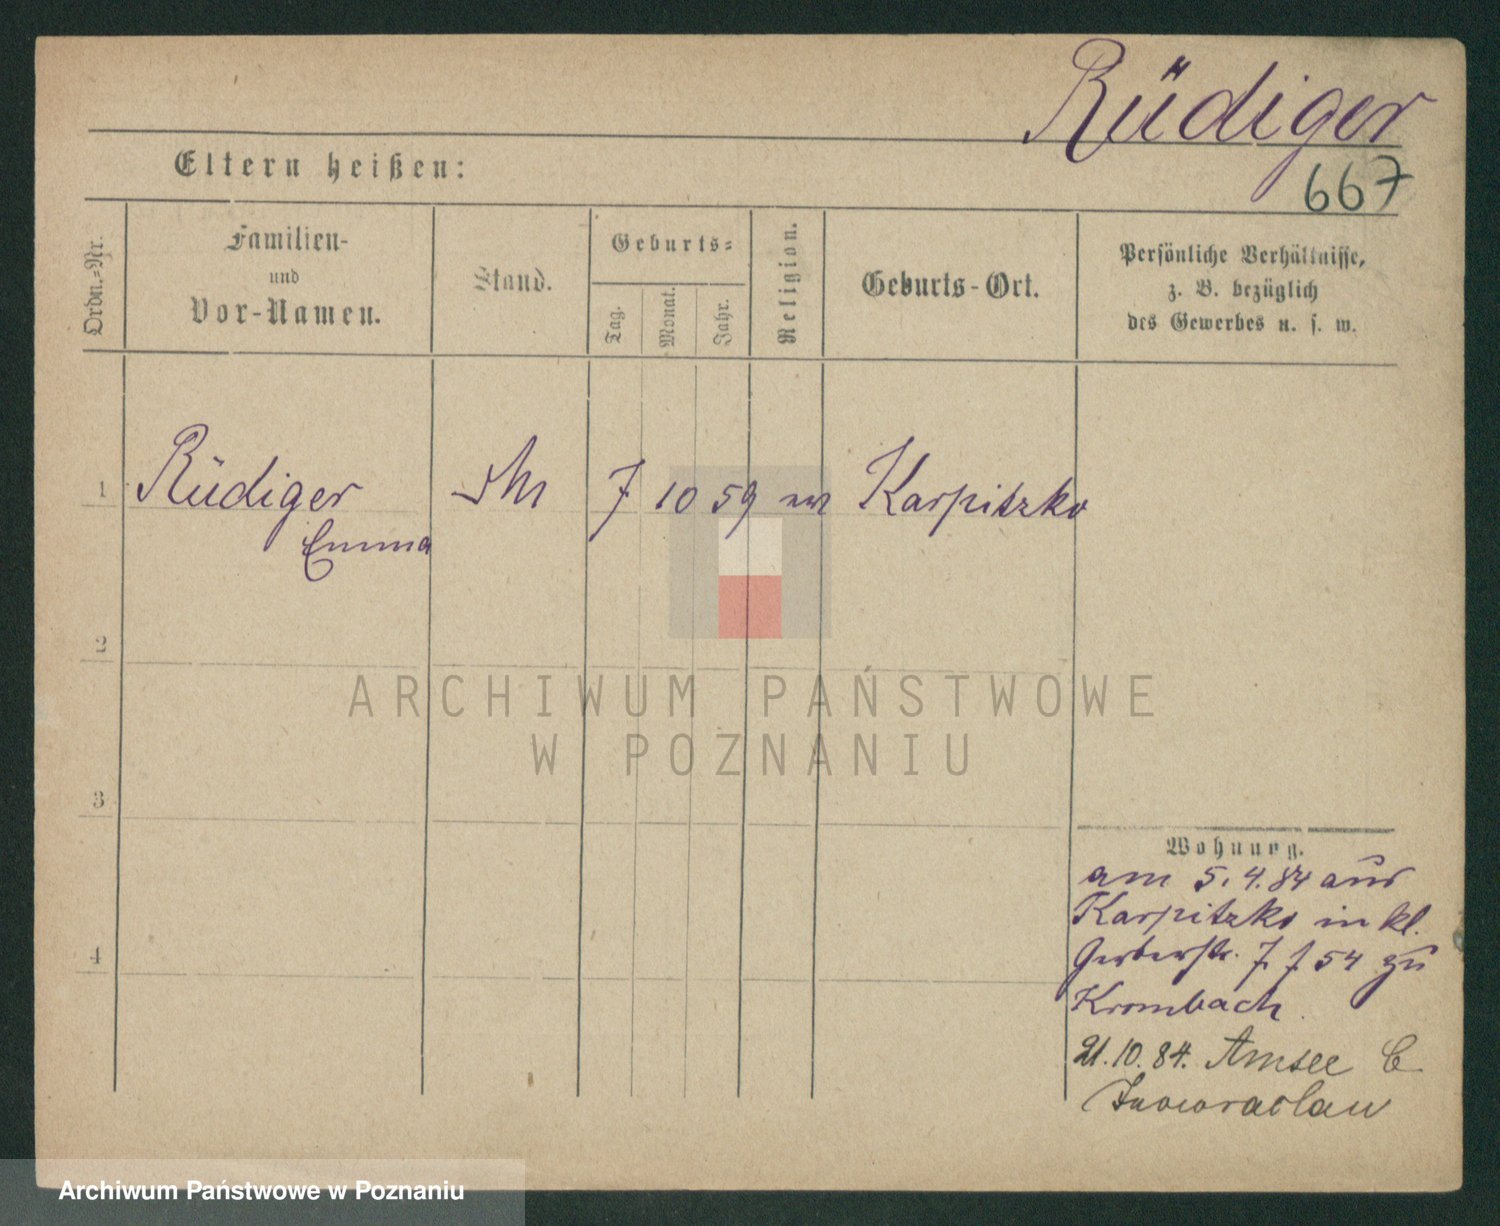 Rüdiger
667
Eltern heißen:
Ordn.-Nr.
Familien-
und
Vor-Namen.
Stand.
Geburts-
Tag.
Monat.
Jahr.
Religion.
Geburts-Ort.
Persönliche Verhältnisse,
z. B. bezüglich
des Gewerbes u. s. w.
1 Rüdiger 7 10 59 Karpitzko
Emma
2
3
4
ARCHIWUM PAŃSTWOWE
W POZNANIU
Wohnung.
am 5.4.84 aus
Karpitzko in kl.
Gerberstr. 7 f 54 zu
Krombach.
21.10.84. Amsee
Inowraclaw
Archiwum Państwowe w Poznaniu